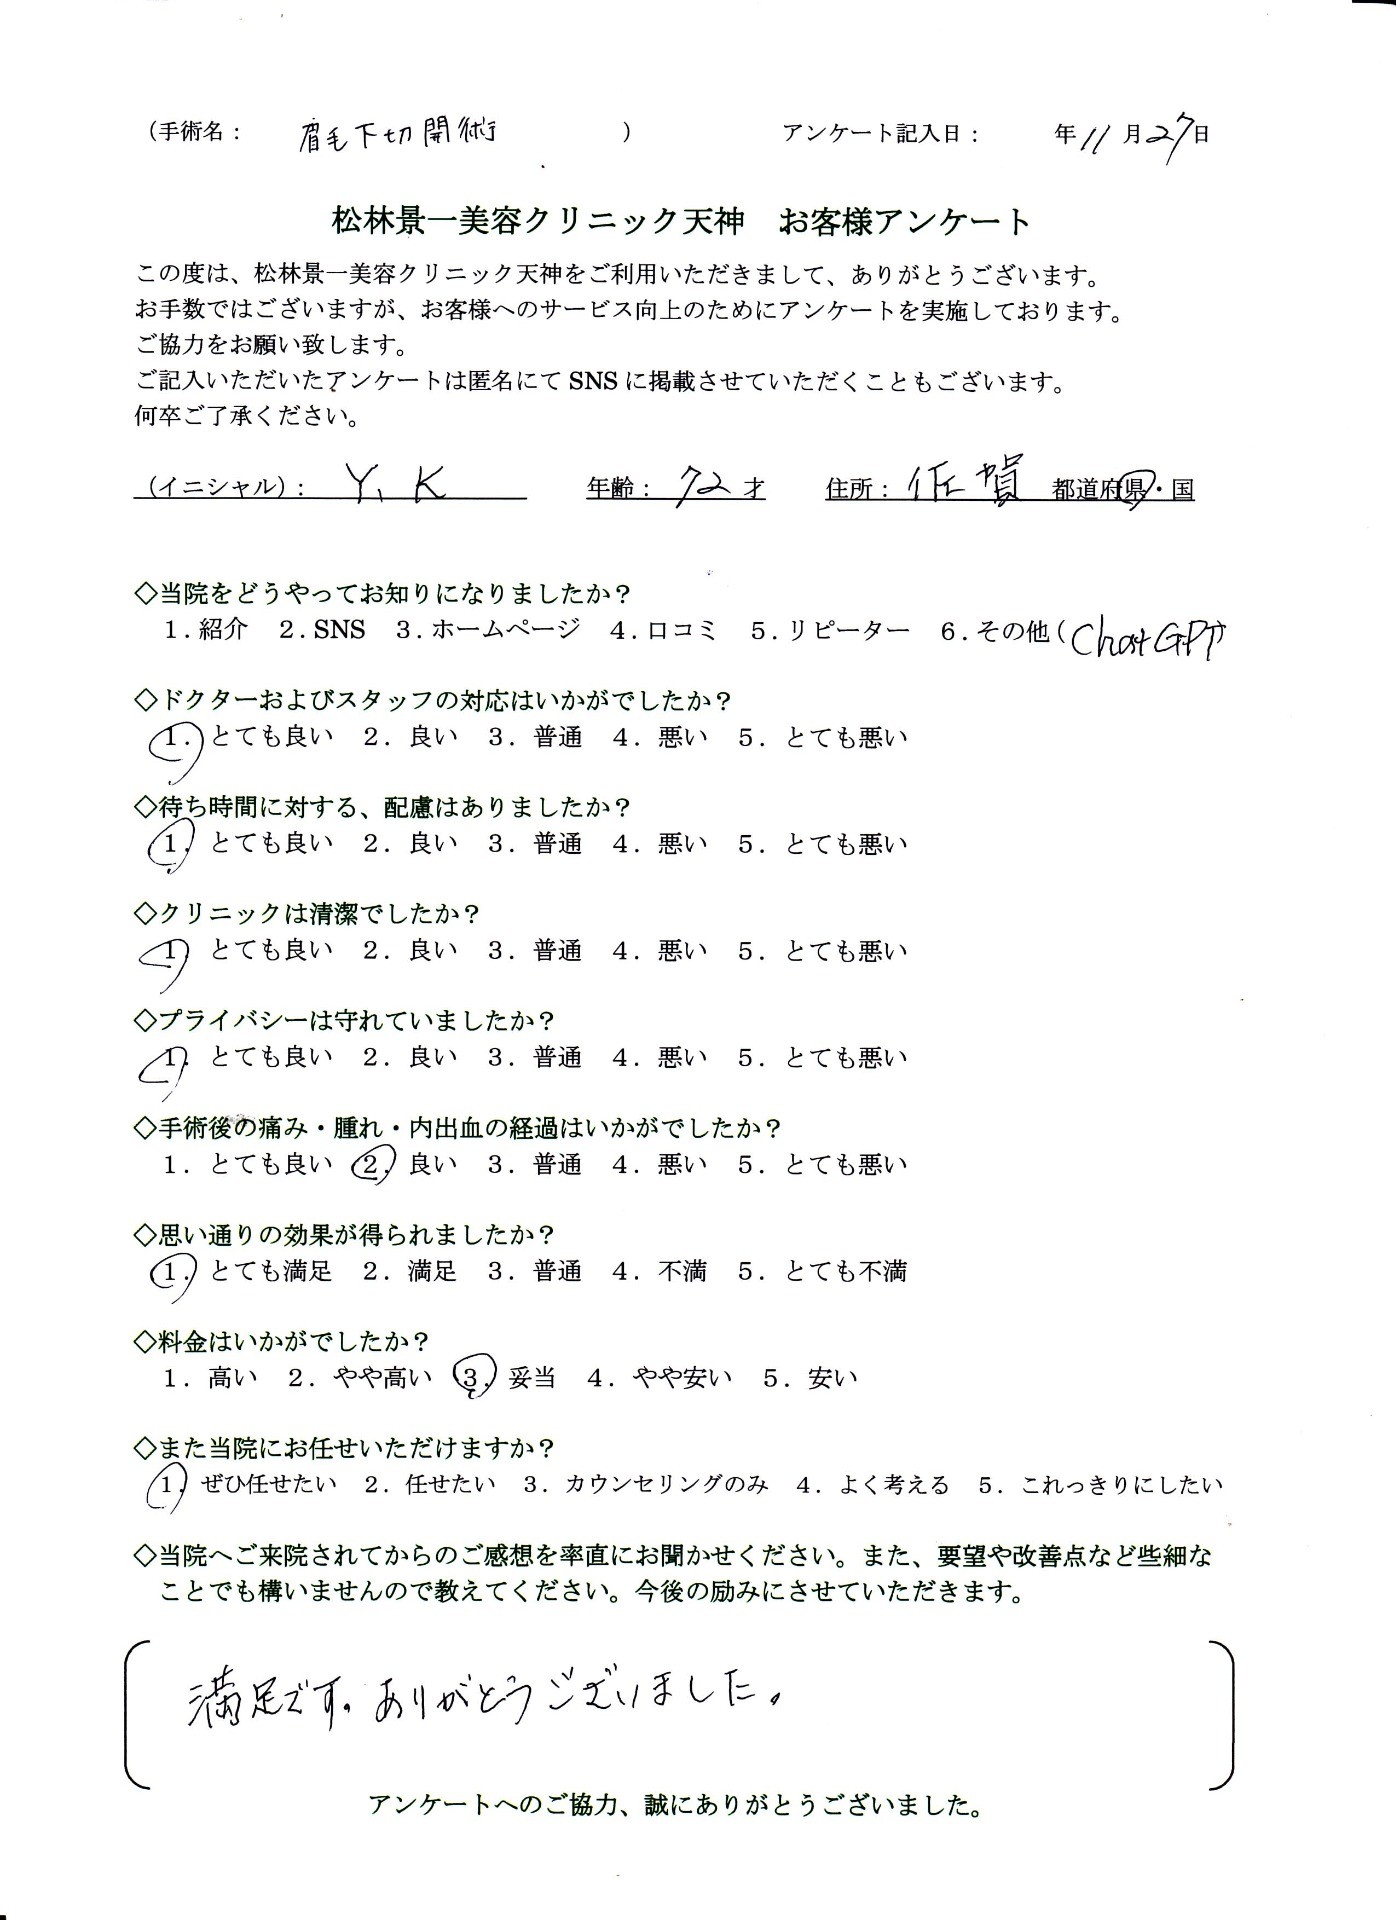 （手術名： 眉毛下切開術 ） アンケート記入日： 年 11 月 27 日
松林景一美容クリニック天神 お客様アンケート
この度は、松林景一美容クリニック天神をご利用いただきまして、ありがとうございます。
お手数ではございますが、お客様へのサービス向上のためにアンケートを実施しております。
ご協力をお願い致します。
ご記入いただいたアンケートは匿名にて SNS に掲載させていただくこともございます。
何卒ご了承ください。
（イニシャル）： Y、K 年齢： 72 才 住所： 佐賀 都道府県・国
◇当院をどうやってお知りになりましたか？
1．紹介 2．SNS 3．ホームページ 4．口コミ 5．リピーター 6．その他（ChatGPT）
◇ドクターおよびスタッフの対応はいかがでしたか？
1．とても良い 2．良い 3．普通 4．悪い 5．とても悪い
◇待ち時間に対する、配慮はありましたか？
1．とても良い 2．良い 3．普通 4．悪い 5．とても悪い
◇クリニックは清潔でしたか？
1．とても良い 2．良い 3．普通 4．悪い 5．とても悪い
◇プライバシーは守れていましたか？
1．とても良い 2．良い 3．普通 4．悪い 5．とても悪い
◇手術後の痛み・腫れ・内出血の経過はいかがでしたか？
1．とても良い 2．良い 3．普通 4．悪い 5．とても悪い
◇思い通りの効果が得られましたか？
1．とても満足 2．満足 3．普通 4．不満 5．とても不満
◇料金はいかがでしたか？
1．高い 2．やや高い 3．妥当 4．やや安い 5．安い
◇また当院にお任せいただけますか？
1．ぜひ任せたい 2．任せたい 3．カウンセリングのみ 4．よく考える 5．これっきりにしたい
◇当院へご来院されてからのご感想を率直にお聞かせください。また、要望や改善点など些細な
ことでも構いませんので教えてください。今後の励みにさせていただきます。
満足です。ありがとうございました。
アンケートへのご協力、誠にありがとうございました。